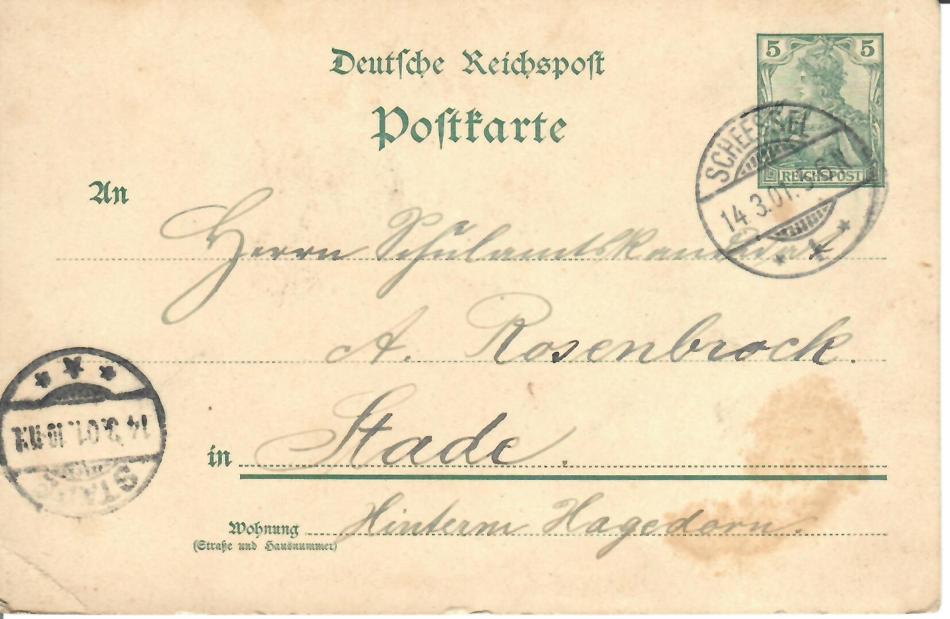 Deutsche Reichspost
Postkarte
5 5
REICHSPOST
SCHEESSEL
14.3.01.
An
Herrn Schulamtskandidat
A. Rosenbrock.
in Stade.
Wohnung Hinterm Hagedorn.
(Straße und Hausnummer)
STADE
14.3.01.